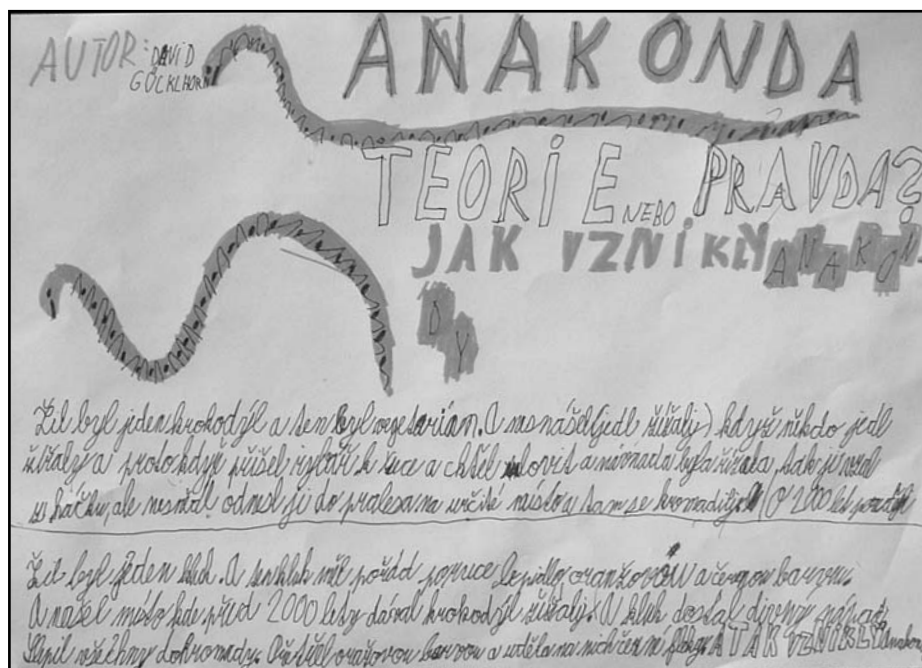 AUTOR: DAVID
GÖCKLHORN
ANAKONDA
TEORIE NEBO PRAVDA?
JAK VZNIKLY ANAKON
DY
Žil byl jeden krokodýl a ten byl vegetarián. A nesnášel (jedl žížaly) když někdo jedl
žížaly a protokdyž přišel rybář k řece a chtěl lovit a návnada byla žížala, tak ji vzal
z háčku, ale nesnědl odnesl ji do pralesa na určité místo a tam se hromadily. (O 2000 let později
Žil byl jeden kluk. A ten kluk měl pořád po ruce lepidlo, oranžovou a černou barvu.
A našel místo kde před 2000 lety dával krokodýl žížaly. A kluk dostal divný nápad.
Slepil všechny dohromady. Natřel oražovou barvou a udělal na nich černé A TAK VZNIKLY Anakon